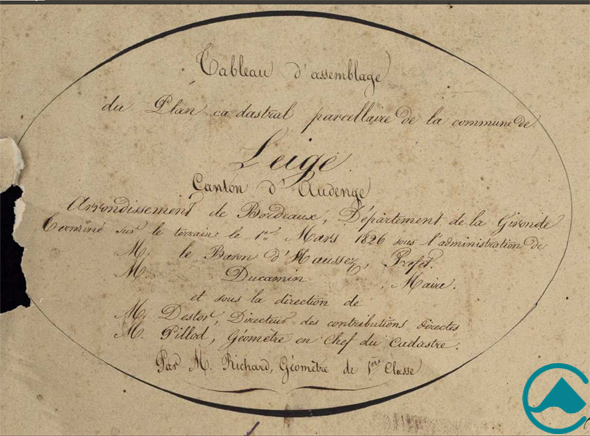 Tableau d'assemblage
du Plan cadastral parcellaire de la commune de
Leige
Canton d'Audenge
Arrondissement de Bordeaux, Département de la Gironde
Terminé sur le terrain le 1er Mars 1826 sous l'administration de
M. le Baron d'Haussez, Préfet.
M. Ducamin, Maire.
et sous la direction de
M. Destor, Directeur des contributions directes
M. Pillod, Géomètre en Chef du Cadastre.
Par M. Richard, Géomètre de 1ère Classe